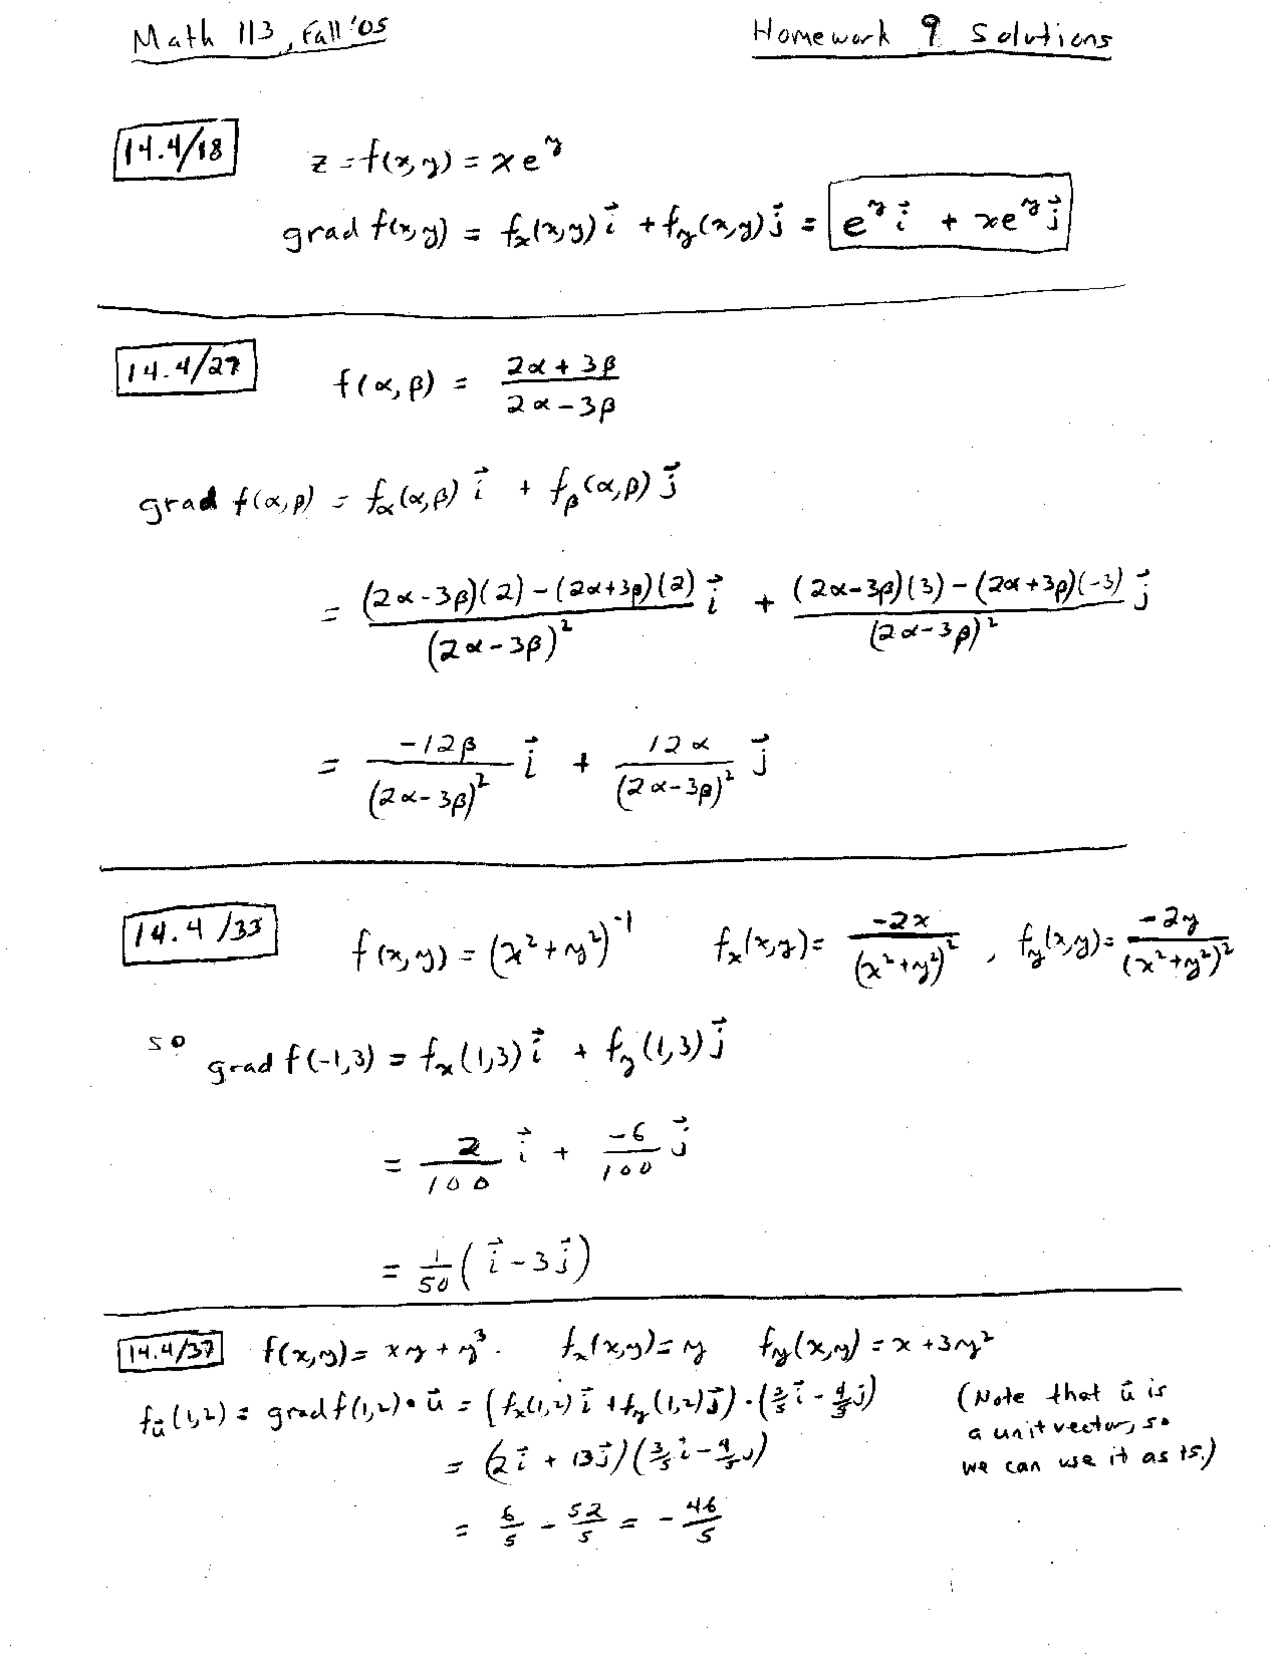 Math 113, Fall '05
Homework 9 Solutions
14.4/18 z = f(x,y) = xe^y
grad f(x,y) = f_x(x,y) i⃗ + f_y(x,y) j⃗ = e^y i⃗ + xe^y j⃗
14.4/27 f(α,β) = (2α + 3β)/(2α − 3β)
grad f(α,β) = f_α(α,β) i⃗ + f_β(α,β) j⃗
= ((2α−3β)(2) − (2α+3β)(2))/(2α−3β)² i⃗ + ((2α−3β)(3) − (2α+3β)(−3))/(2α−3β)² j⃗
= −12β/(2α−3β)² i⃗ + 12α/(2α−3β)² j⃗
14.4/33 f(x,y) = (x²+y²)⁻¹ f_x(x,y) = −2x/(x²+y²)², f_y(x,y) = −2y/(x²+y²)²
so grad f(−1,3) = f_x(1,3) i⃗ + f_y(1,3) j⃗
= 2/100 i⃗ + −6/100 j⃗
= 1/50 ( i⃗ − 3j⃗ )
14.4/37 f(x,y) = xy + y³. f_x(x,y) = y f_y(x,y) = x + 3y²
f_u⃗(1,2) = grad f(1,2) • u⃗ = (f_x(1,2) i⃗ + f_y(1,2) j⃗) · (3/5 i⃗ − 4/5 j⃗) (Note that u⃗ is
a unit vector, so
= (2i⃗ + 13j⃗)(3/5 i⃗ − 4/5 j⃗) we can use it as is.)
= 6/5 − 52/5 = −46/5